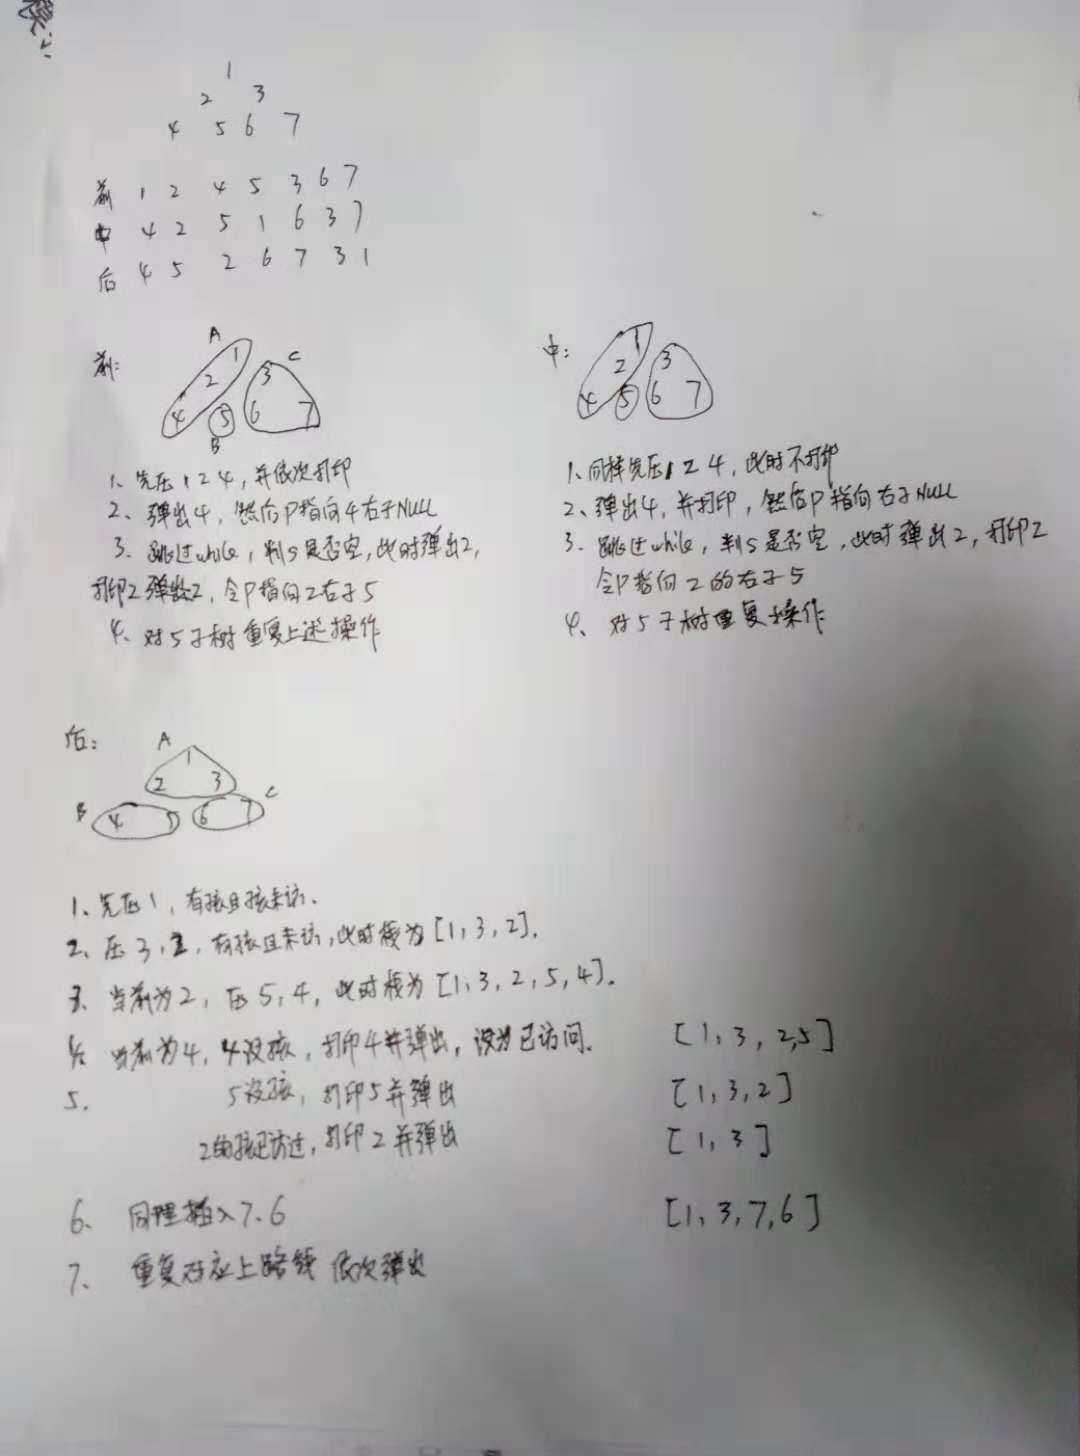 1
2 3
4 5 6 7
前 1 2 4 5 3 6 7
中 4 2 5 1 6 3 7
后 4 5 2 6 7 3 1
前:
A
1 C
2 3
4 5 6 7
B
1、先压 1 2 4, 并依次打印
2、弹出4, 然后P指向4右子NULL
3、跳过while, 判S是否空, 此时弹出2,
打印2 2, 令P指向2右子5
4、对5子树重复上述操作
中:
1
2 3
4 5 6 7
1、同样先压1 2 4, 此时不打印
2、弹出4, 并打印, 然后P指向右子NULL
3、跳过while, 判S是否空, 此时弹出2, 打印2
令P指向2的右子5
4、对5子树重复操作
后:
A
1
2 3
B C
4 5 6 7
1、先压1, 有孩且孩未访.
2、压3, 2, 有孩且未访, 此时栈为[1, 3, 2].
3、当前为2, 压5, 4, 此时栈为[1, 3, 2, 5, 4].
4、当前为4, 4没孩, 打印4并弹出, 设为已访问. [1, 3, 2, 5]
5. 5没孩, 打印5并弹出 [1, 3, 2]
2的孩已访过, 打印2并弹出 [1, 3]
6、同理插入7、6 [1, 3, 7, 6]
7、重复对应上 依次弹出